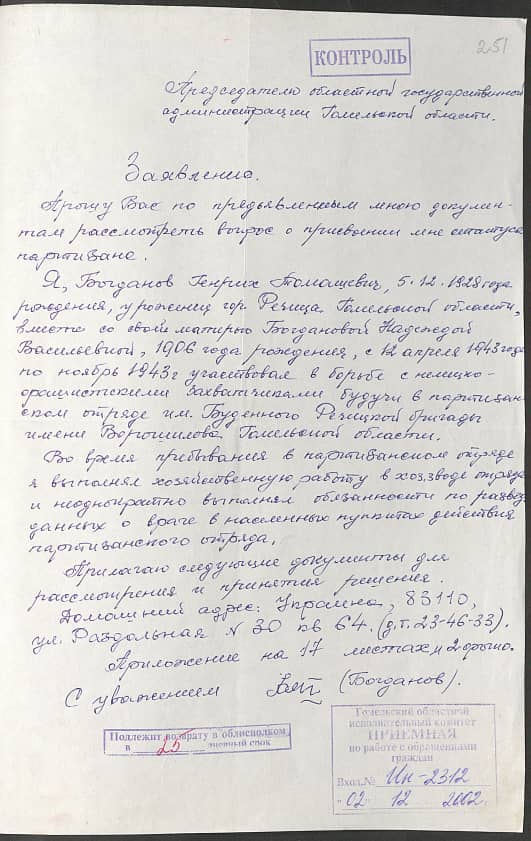 251
КОНТРОЛЬ
Председателю областной государственной
администрации Гомельской области.
Заявление.
Прошу Вас по предъявленным мною докумен-
там рассмотреть вопрос о присвоении мне статуса
партизана.
Я, Богданов Генрих Томашевич, 5.12.1928 года
рождения, уроженец гор. Речица Гомельской области,
вместе со своей матерью Богдановой Надеждой
Васильевной, 1906 года рождения, с 12 апреля 1943 года
по ноябрь 1943 г участвовал в борьбе с немецко-
фашистскими захватчиками будучи в партизан-
ском отряде им. Буденного Речицкой бригады
имени Ворошилова Гомельской области.
Во время прибывания в партизанском отряде
я выполнял хозяйственную работу в хоз.взводе отряда
и неоднократно выполнял обязанности по развед
данных о враге в населенных пунктах действия
партизанского отряда.
Прилагаю следующие документы для
рассмотрения и принятия решения.
Домашний адрес: Украина, 83110,
ул. Раздольная N 30 кв 64. (д.т. 23-46-33).
Приложение на 17 листах и 2 фото.
С уважением (Богданов).
Подлежит возврату в облисполком
в 25 дневный срок
Гомельский областной
исполнительный комитет
ПРИЕМНАЯ
по работе с обращениями
граждан
Вход.№ Ин-2312
"02" 12 2002.